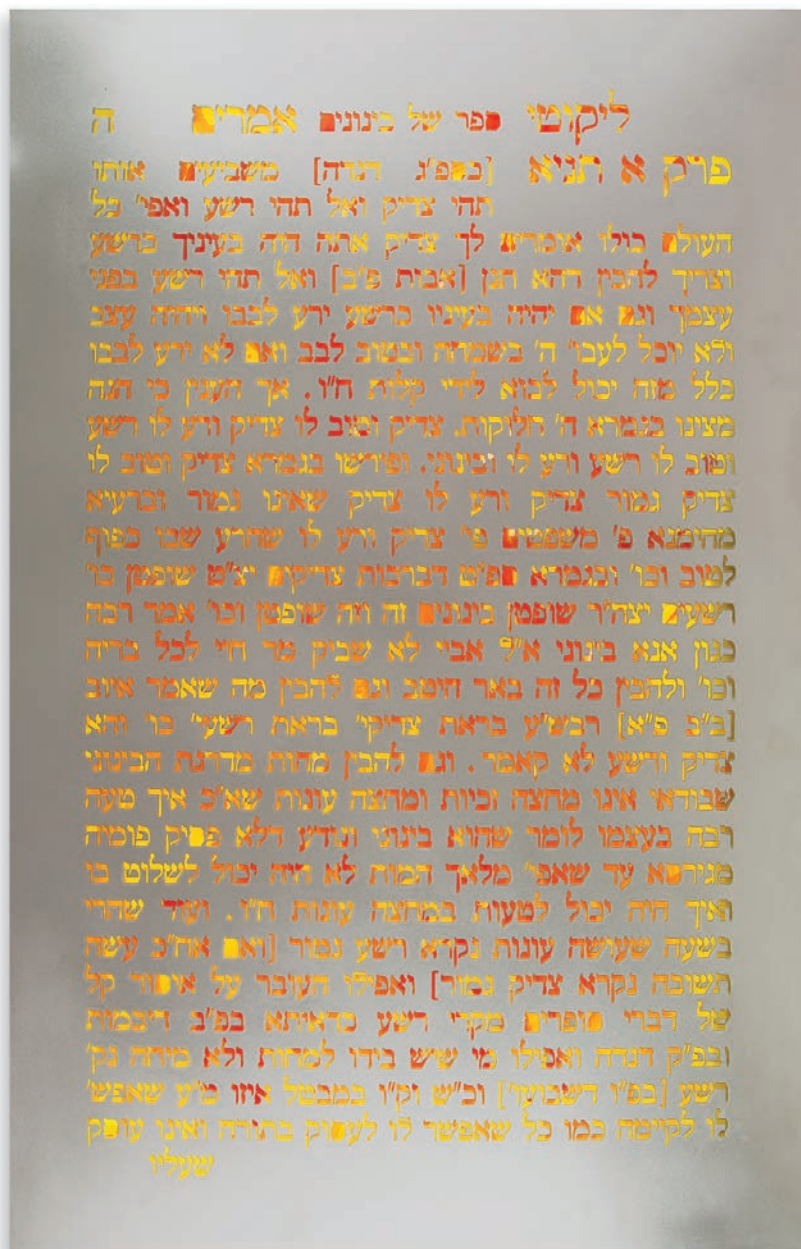 ליקוטי ספר של בינונים אמרים ה
פרק א תניא [בספ"ג דנדה] משביעים אותו
תהי צדיק ואל תהי רשע ואפי' כל
העולם כולו אומרים לך צדיק אתה היה בעיניך כרשע
וצריך להבין דהא תנן [אבות פ"ב] ואל תהי רשע בפני
עצמך וגם אם יהיה בעיניו כרשע ירע לבבו ויהיה עצב
ולא יוכל לעבו' ה' בשמחה ובטוב לבב ואם לא ירע לבבו
כלל מזה יכול לבוא לידי קלות ח"ו. אך הענין כי הנה
מצינו בגמרא ה' חלוקות. צדיק וטוב לו צדיק ורע לו רשע
וטוב לו רשע ורע לו ובינוני. ופירשו בגמרא צדיק וטוב לו
צדיק גמור צדיק ורע לו צדיק שאינו גמור וברעיא
מהימנא פ' משפטים פי' צדיק ורע לו שהרע שבו כפוף
לטוב וכו' ובגמרא ספ"ט דברכות צדיקים יצ"ט שופטן כו'
רשעים יצה"ר שופטן בינונים זה וזה שופטן וכו' אמר רבה
כגון אנא בינוני א"ל אביי לא שביק מר חיי לכל בריה
וכו' ולהבין כל זה באר היטב וגם להבין מה שאמר איוב
[ב"ב פ"א] רבש"ע בראת צדיקי' בראת רשעי' כו' והא
צדיק ורשע לא קאמר. וגם להבין מהות מדרגת הבינוני
שבודאי אינו מחצה זכיות ומחצה עונות שא"כ איך טעה
רבה בעצמו לומר שהוא בינוני ונודע דלא פסיק פומיה
מגירסא עד שאפי' מלאך המות לא היה יכול לשלוט בו
ואיך היה יכול לטעות במחצה עונות ח"ו. ועוד שהרי
בשעה שעושה עונות נקרא רשע גמור [ואם אח"כ עשה
תשובה נקרא צדיק גמור] ואפילו העובר על איסור קל
של דברי סופרים מקרי רשע כדאיתא בפ"ב דיבמות
ובפ"ק דנדה ואפילו מי שיש בידו למחות ולא מיחה נק'
רשע [בפ"ו דשבועו'] וכ"ש וק"ו במבטל איזו מ"ע שאפש'
לו לקיימה כמו כל שאפשר לו לעסוק בתורה ואינו עוסק
שעליו